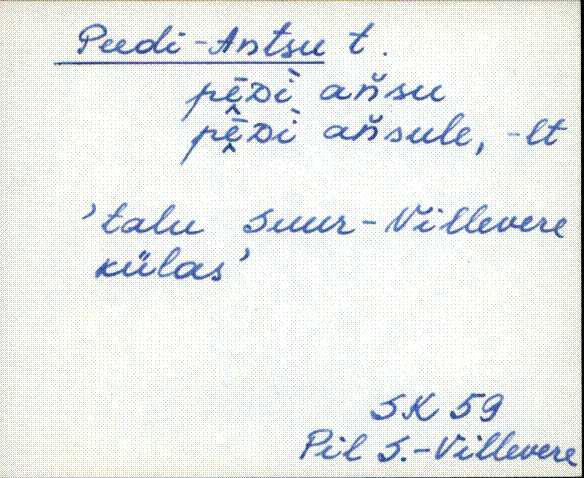 Peedi-Antsu t.
pē̬ᴅì ańsu
pē̬ᴅì ańsule, -lt
'talu Suur-Villevere
külas'
SK 59
Pil S.-Villevere